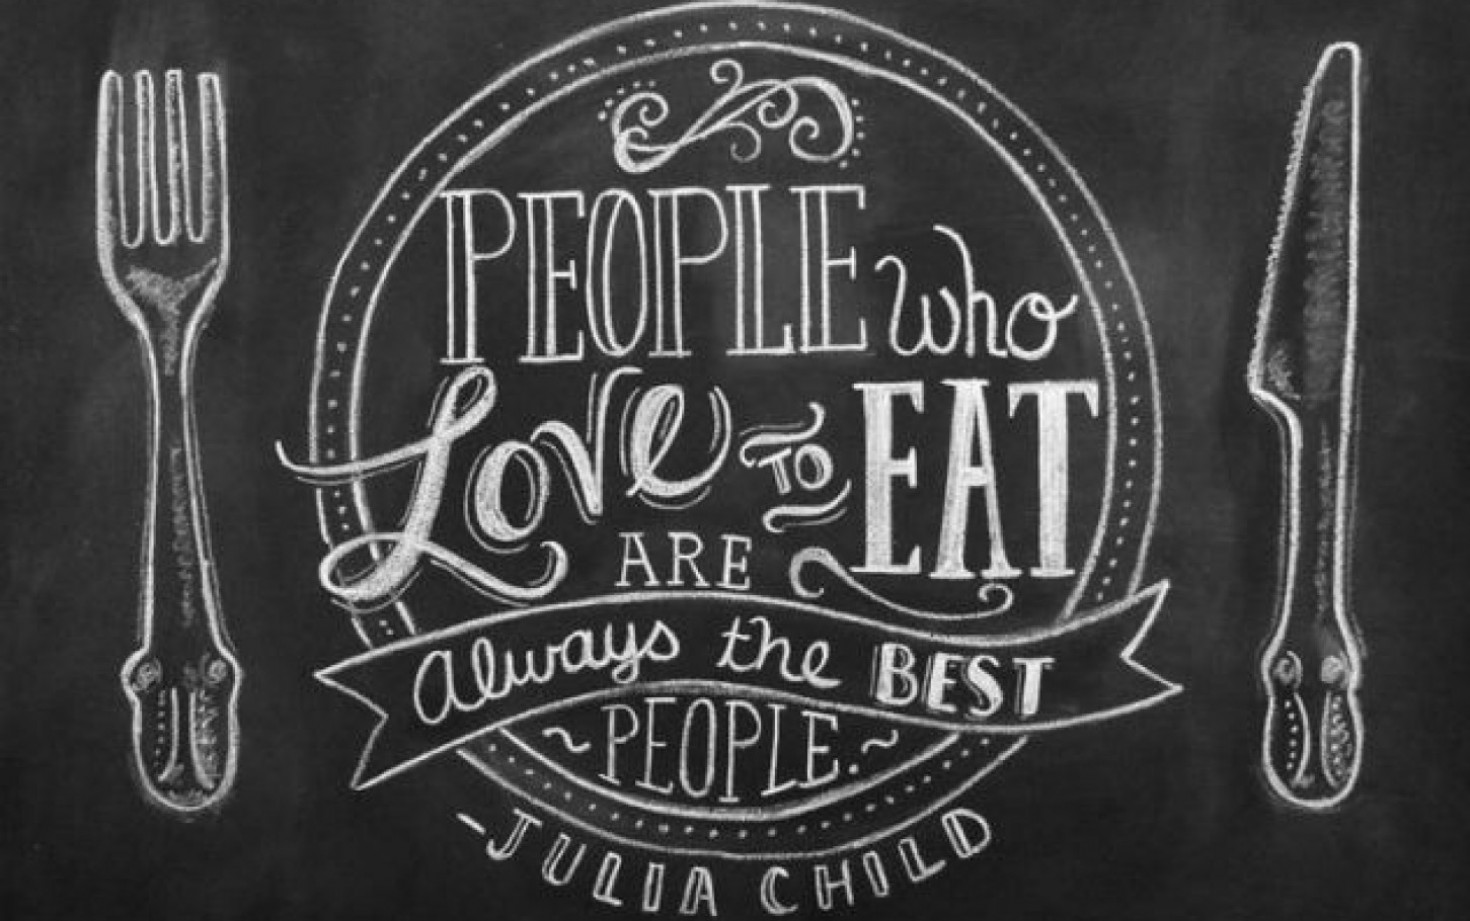 PEOPLE who
Love TO EAT
ARE
always the BEST
~PEOPLE.~
-JULIA CHILD